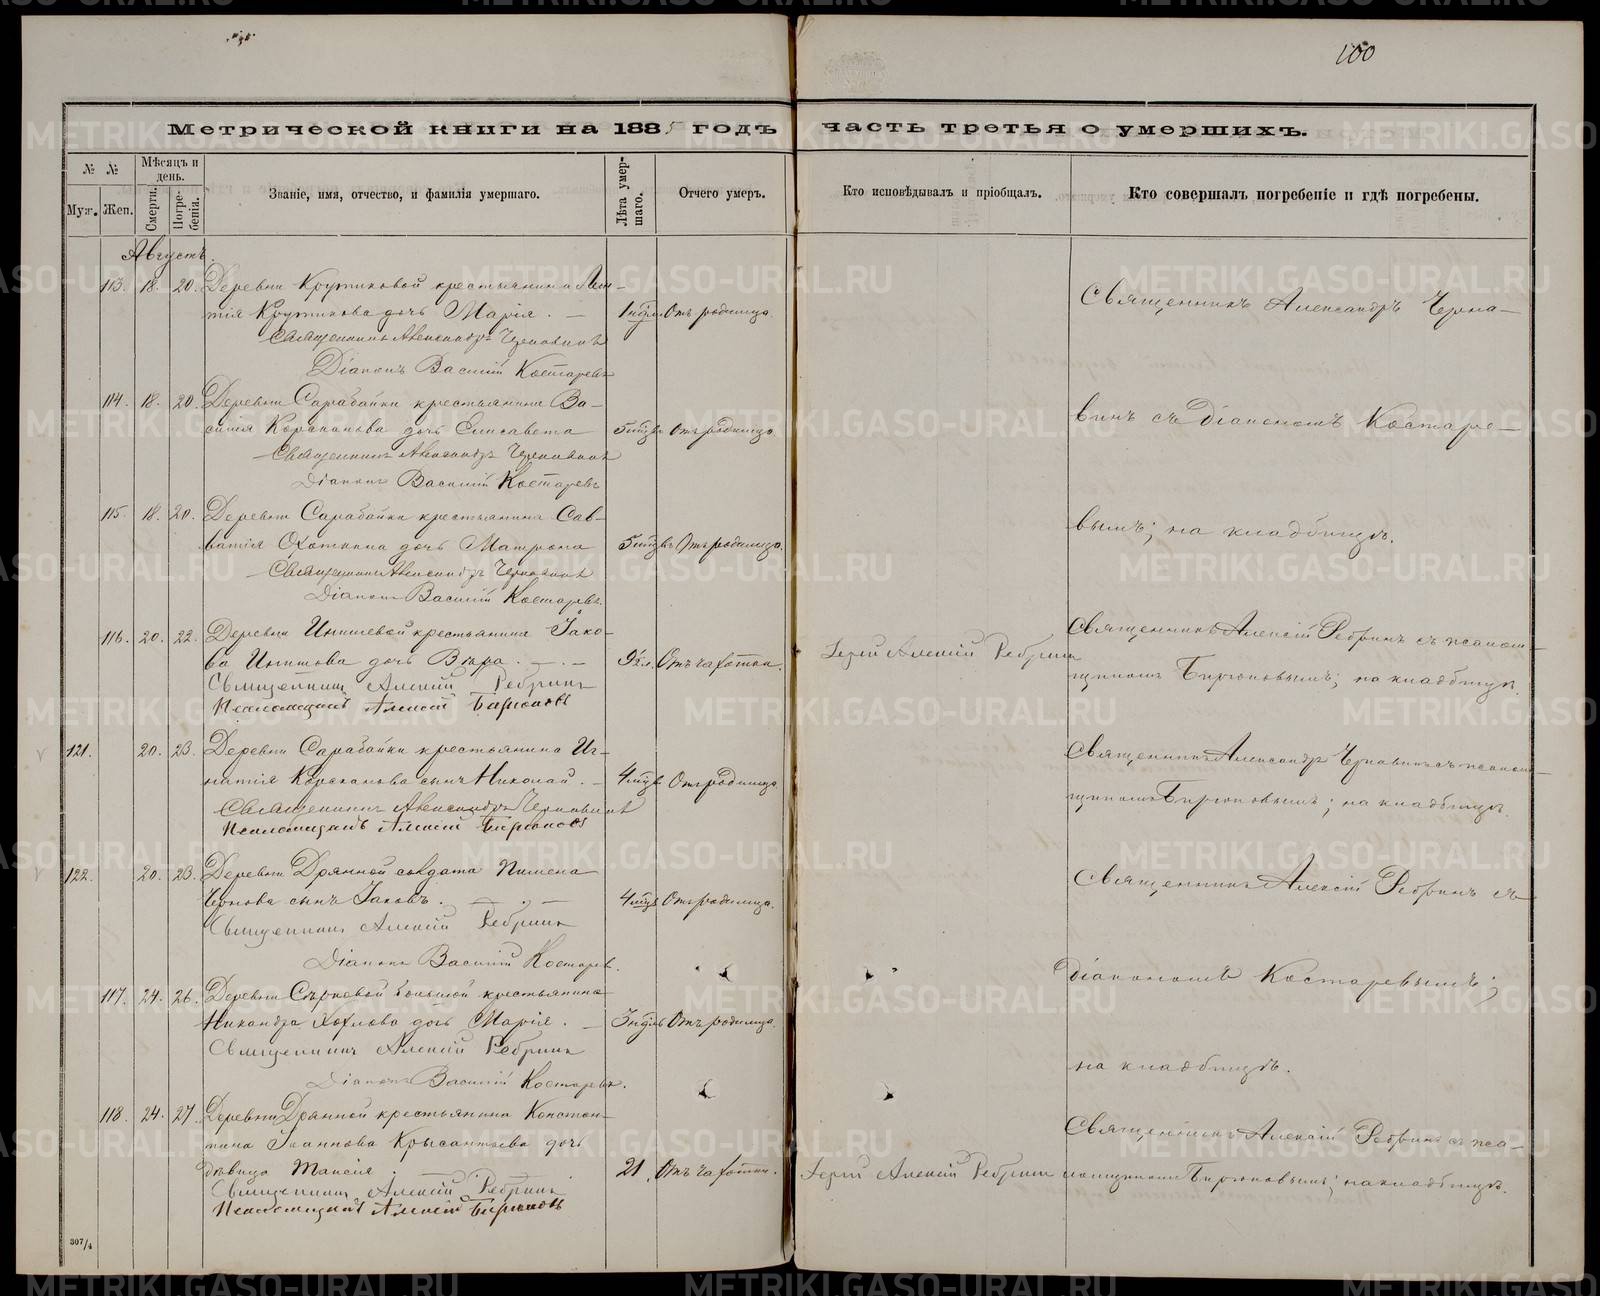 100
Метрической книги на 1885 годъ
часть третья о умершихъ.
№ №
Муж. Жен.
Мѣсяцъ и день.
Смерти.
Погребенія.
Званіе, имя, отчество, и фамилія умершаго.
Лѣта умершаго.
Отчего умеръ.
Кто исповѣдывалъ и пріобщалъ.
Кто совершалъ погребеніе и гдѣ погребены.
Августъ.
113. 18. 20. Деревни крестьянина
дочь Марія. — Отъ родимца.
Священникъ Александръ Черна-
Священникъ Александръ Чернавинъ
Діаконъ Василій Костаревъ
114. 18. 20. Деревни Сарабайки крестьянина Ва-
силія Корсканова дочь Елисавета 5 мцвъ Отъ родимца.
винъ съ діакономъ Костаре-
Священникъ Александръ Чернавинъ
Діаконъ Василій Костаревъ
115. 18. 20. Деревни Сарабайки крестьянина Сав-
ватія дочь Матрона 5 мцвъ Отъ родимца.
вымъ; на кладбищѣ.
Священникъ Александръ Чернавинъ
Діаконъ Василій Костаревъ.
116. 20. 22. Деревни крестьянина Іако-
ва дочь Вѣра. — . — Отъ чахотки.
Іерей Алексій Ребринъ
Священникъ Алексій Ребринъ съ псалом-
щикомъ Бирюковымъ; на кладбищѣ.
Священникъ Алексій Ребринъ
Псаломщикъ Алексій Бирюковъ
121. 20. 23. Деревни Сарабайки крестьянина Иг-
натія Корсканова сынъ Николай. — 4 мцв Отъ родимца
Священникъ Александръ Чернавинъ съ псалом-
щикомъ Бирюковымъ; на кладбищѣ.
Священникъ Александръ Чернавинъ
Псаломщикъ Алексій Бирюковъ
122. 20. 23. Деревни Дрянной солдата Пимена
Чернова сынъ Іаковъ. — . — 4 мцв Отъ родимца.
Священникъ Алексій Ребринъ съ
Священникъ Алексій Ребринъ
Діаконъ Василій Костарев.
діакономъ Костаревымъ;
117. 24. 26. Деревни большой крестьянина
Никандра Хохлова дочь Марія. — Отъ родимца.
Священникъ Алексій Ребринъ
на кладбищѣ.
Діаконъ Василій Костаревъ.
118. 24. 27. Деревни Дрянной крестьянина Констан-
тина Іаннова дочь
дѣвица Таисія. — 21. Отъ чахотки.
Іерей Алексій Ребринъ
Священникъ Алексій Ребринъ съ пса-
ломщикомъ Бирюковымъ; на кладбищѣ.
Священникъ Алексій Ребринъ
Псаломщикъ Алексій Бирюковъ
307/4
METRIKI.GASO-URAL.RU